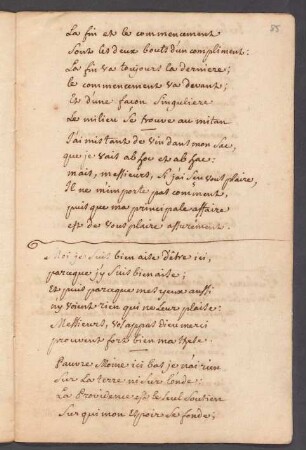 85
La fin et le commencement
Sont les deux bouts d'un compliment:
La fin va toujours la derniere;
le commencement va devant;
Et d'une façon Singuliere
Le milieu Se trouve au mitan
J'ai mis tant de vin dans mon Sac,
que je vais ab hoc et ab hac:
mais, messieurs, Si j'ai Sçu vous plaire,
Il ne m'importe pas comment,
puis que ma principale affaire
est de vous plaire assurement.
Moi je Suis bien aise d'être ici,
parceque j'y Suis bien aise;
Et puis parceque mes yeux aussi
n'y voient rien qui ne Leur plaise:
Messieurs, vos appas dieu merci
prouvent fort bien ma these.
Pauvre Moine ici bas je n'ai rien
Sur La terre ni Sur L'onde:
La Providence est le Seul Soutien
Sur qui mon Espoir Se fonde;